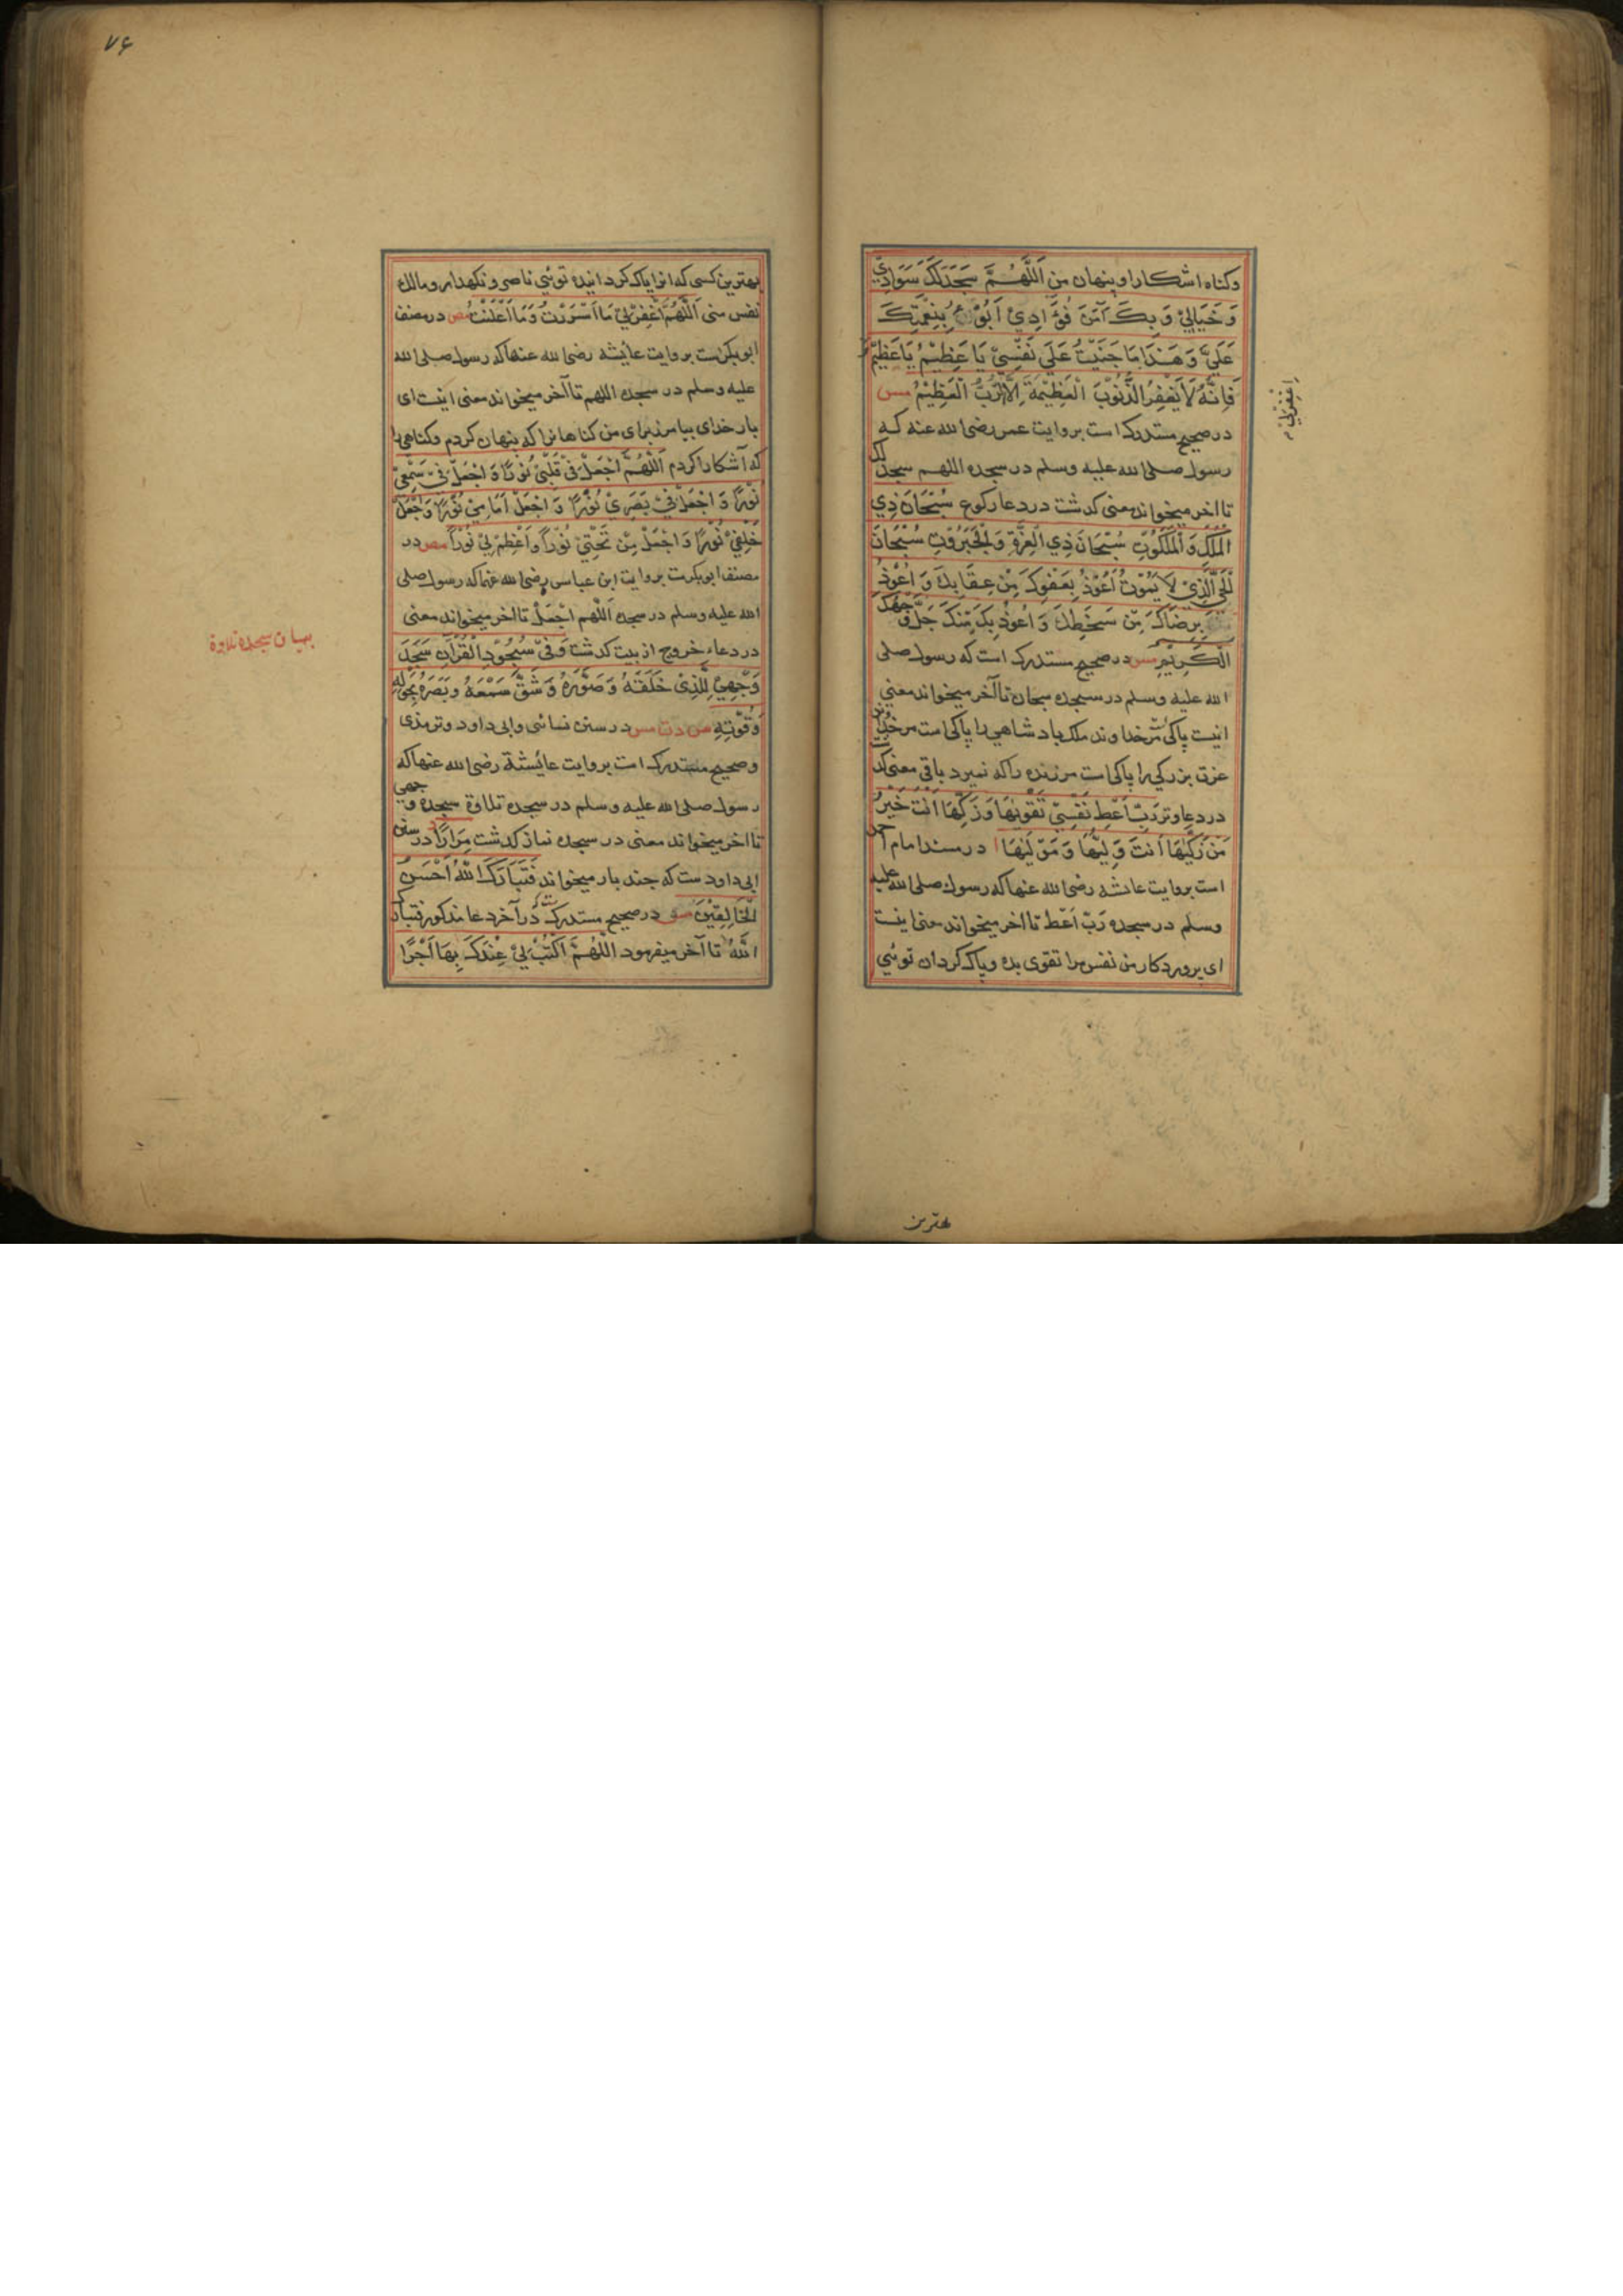 وكناه اشكارا و پنهان من اَللّٰهُمَّ سَجَدَلَكَ سَوَادِيْ
وَ خَيَالِيْ وَ بِكَ آمَنَ فُؤَادِيْ اَبُوْءُ بِنِعْمَتِكَ
عَلَيَّ وَ هٰذَا مَا جَنَيْتُ عَلَى نَفْسِيْ يَا عَظِيْمُ يَا عَظِيْمُ
اِغْفِرْلِيْ م
فَاِنَّهُ لَا يَغْفِرُ الذُّنُوْبَ الْعَظِيْمَةَ اِلَّا الرَّبُّ الْعَظِيْمُ مس
در صحيح مستدرك است بروايت عمر رضى الله عنه كه
رسول صلى الله عليه وسلم در سجده اللهم سجد لك
تا اخر ميخواند معنى كدشت در دعا ركوع سُبْحَانَ ذِي
الْمُلْكِ وَ الْمَلَكُوْتِ سُبْحَانَ ذِي الْعِزَّةِ وَ الْجَبَرُوْتِ سُبْحَانَ
الْحَيِّ الَّذِيْ لَا يَمُوْتُ اَعُوْذُ بِعَفْوِكَ مِنْ عِقَابِكَ وَ اَعُوْذُ
بِرِضَاكَ مِنْ سَخَطِكَ وَ اَعُوْذُ بِكَ مِنْكَ جَلَّ وَجْهُكَ
الْكَرِيْمِ مس در صحيح مستدرك است كه رسول صلى
الله عليه وسلم در سجده سبحان تا آخر ميخواند معنى
اينست پاكى مر خداوند ملك پادشاهي را پاكى است مر خداوند
عزت بزركي را پاكى است مر زنده را كه نميرد باقى معنى كدشت
در دعا وتر رَبِّ اَعْطِ نَفْسِيْ تَقْوٰيهَا وَ زَكِّهَا اَنْتَ خَيْرُ
مَنْ زَكّٰيهَا اَنْتَ وَلِيُّهَا وَ مَوْلٰيهَا ا در مسند امام احمد
است بروايت عائشه رضى الله عنها كه رسول صلى الله عليه
وسلم در سجده رَبِّ اَعْطِ تا اخر ميخواند معنى اينست
اى پروردكار من نفس مرا تقوى بده و پاك كردان توئي
بهترين
٧٦
بهترين كسى كه انرا پاك كردانيده توئي ناصر و نكهدار و مالك
نفس منى اَللّٰهُمَّ اغْفِرْلِيْ مَا اَسْرَرْتُ وَ مَا اَعْلَنْتُ مص در مصنف
ابو بكرست بروايت عائيشه رضى الله عنها كه رسول صلى الله
عليه وسلم در سجده اللهم تا آخر ميخواند معنى اينست اى
بار خداى بيامرز براى من كناهانرا كه پنهان كردم و كناهى را
كه آشكارا كردم اَللّٰهُمَّ اجْعَلْ فِيْ قَلْبِيْ نُوْرًا وَ اجْعَلْ فِيْ سَمْعِيْ
نُوْرًا وَ اجْعَلْ فِيْ بَصَرِيْ نُوْرًا وَ اجْعَلْ اَمَامِيْ نُوْرًا وَ اجْعَلْ
خَلْفِيْ نُوْرًا وَ اجْعَلْ مِنْ تَحْتِيْ نُوْرًا وَ اَعْظِمْ لِيْ نُوْرًا مص در
مصنف ابو بكرست بروايت ابن عباس رضى الله عنهما كه رسول صلى
الله عليه وسلم در سجده اَللّٰهُم اجْعَلْ تا اخر ميخواند معنى
در دعاء خروج از بيت كدشت وَ فِيْ سُجُوْدِ الْقُرْاٰنِ سَجَدَ
بيان سجده تلاوة
وَجْهِيَ لِلَّذِيْ خَلَقَهُ وَ صَوَّرَهُ وَ شَقَّ سَمْعَهُ وَ بَصَرَهُ بِحَوْلِهِ
وَ قُوَّتِهِ س د ت مس در سنن نسائى و ابى داود و ترمذى
و صحيح مستدرك است بروايت عائيشة رضى الله عنها كه
رسول صلى الله عليه وسلم در سجده تلاوة سجده وجهى
تا اخر ميخواند معنى در سجده نماز كدشت مِرَارًا د در سنن
ابى داود ست كه چند بار ميخواند فَتَبَارَكَ اللّٰهُ اَحْسَنُ
الْخَالِقِيْنَ مس در صحيح مستدرك ست كه در آخر دعا مذكور فتبارك
اللّٰهُ تا آخر ميفرمود اَللّٰهُمَّ اكْتُبْ لِيْ عِنْدَكَ بِهَا اَجْرًا